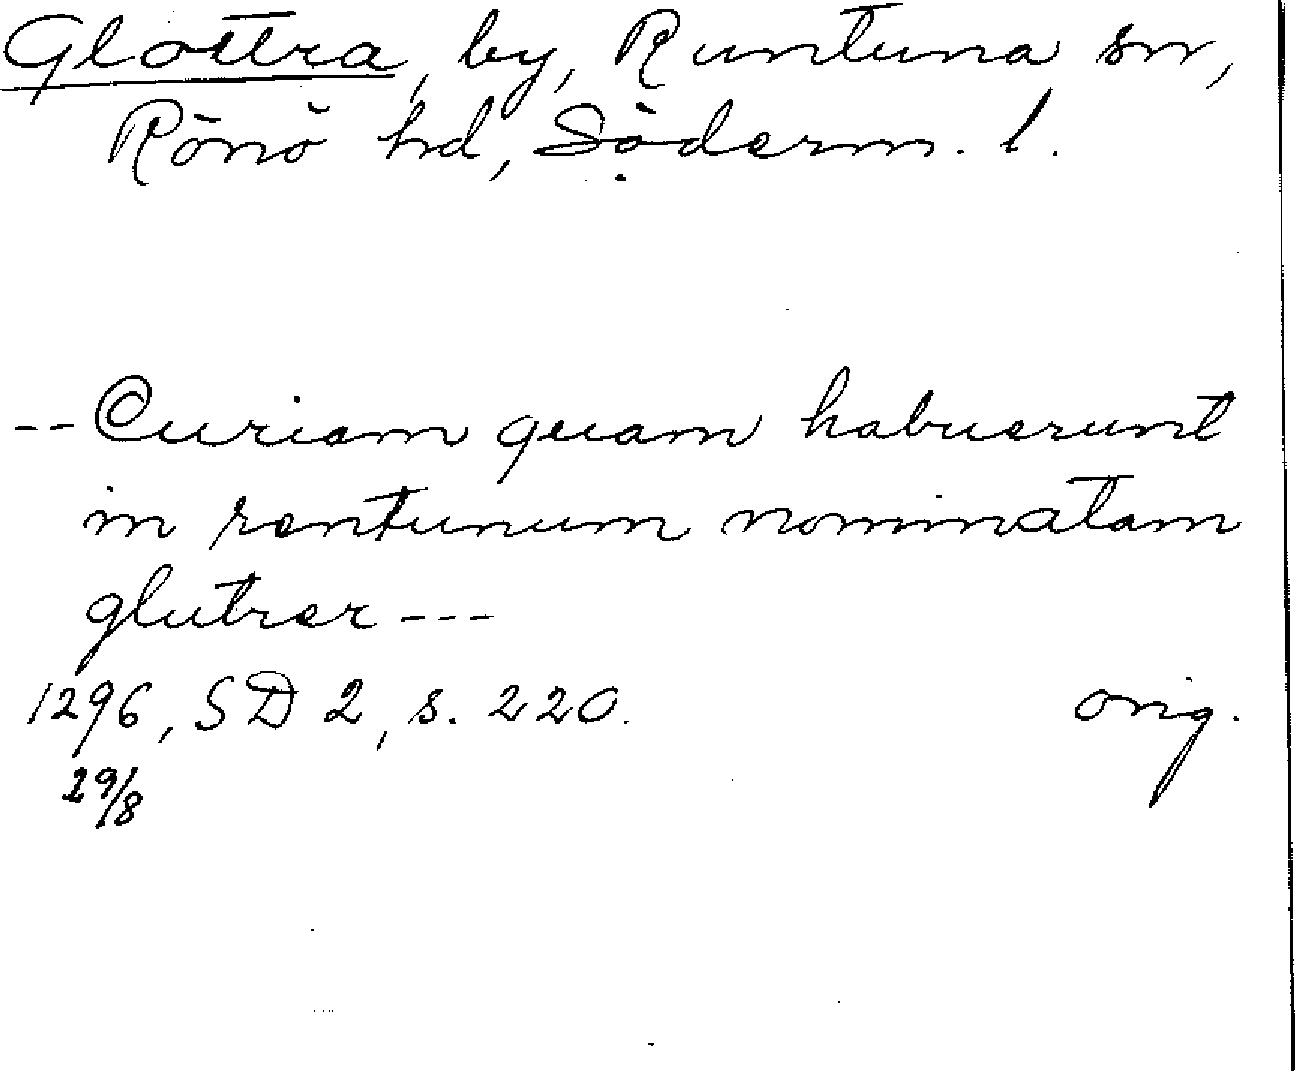 Glottra, by, Runtuna sn,
Rönö hd, Söderm. l.
-- Curiam quam habuerunt
in rentunum nominatam
glutrer ---
1296, SD 2, s. 220. orig.
29/8